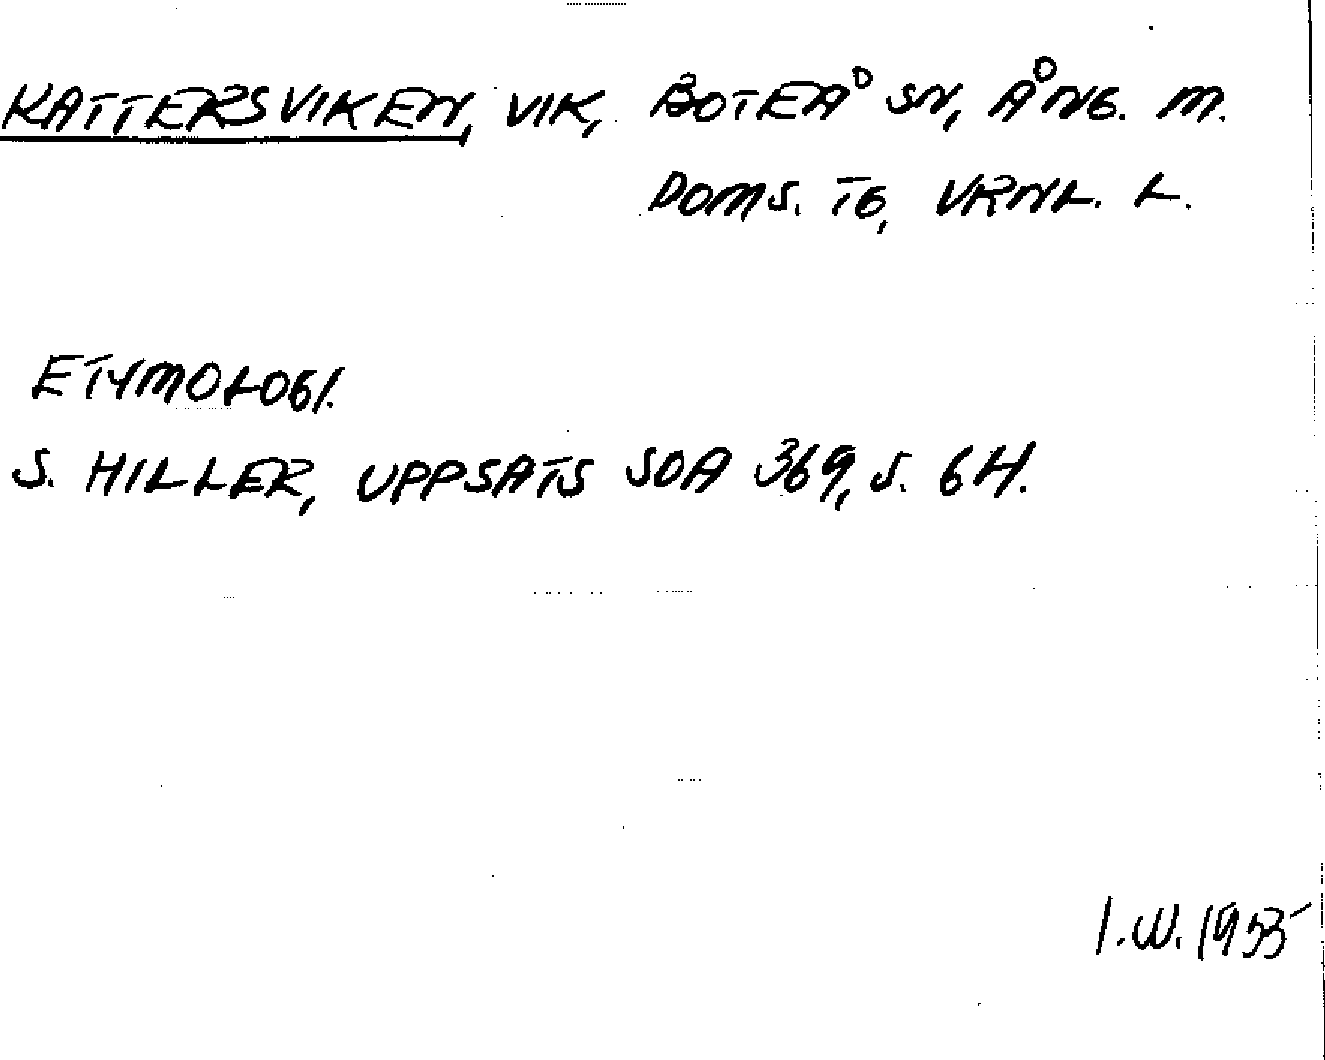 KATTERSVIKEN, VIK, BOTEÅ SN, ÅNG. M.
DOMS. TG, VRNL. L.
ETYMOLOGI.
S. HILLER, UPPSATS SOA 369, S. 64.
I.W. 1955